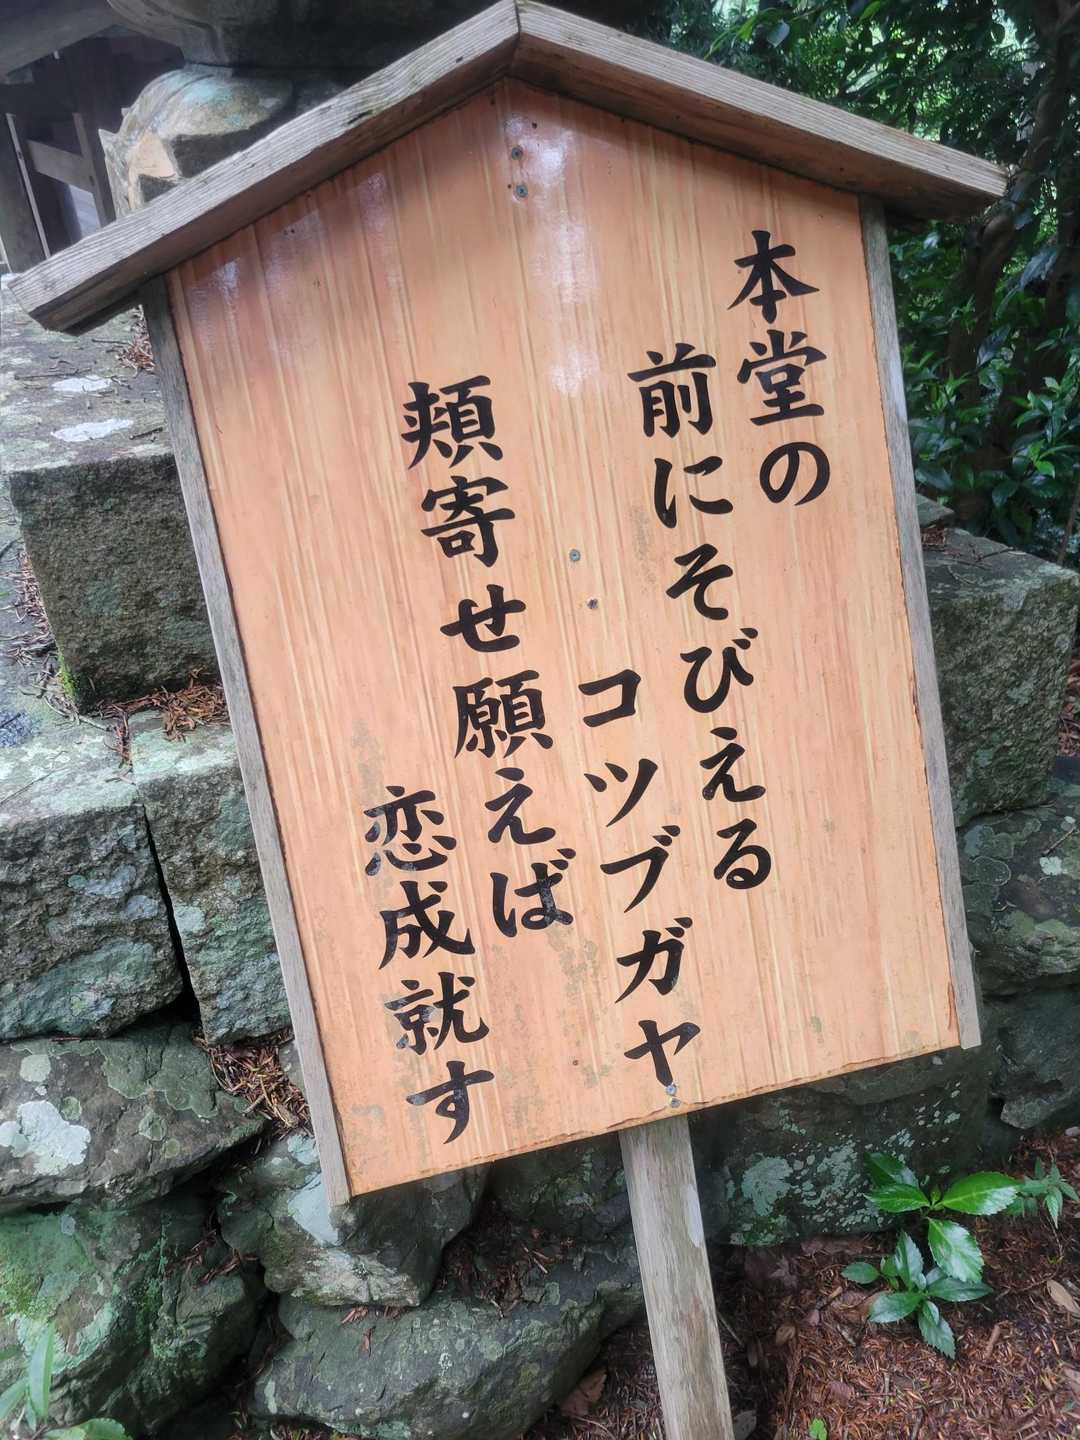 本堂の
前にそびえる
コツブガヤ
頬寄せ願えば
恋成就す